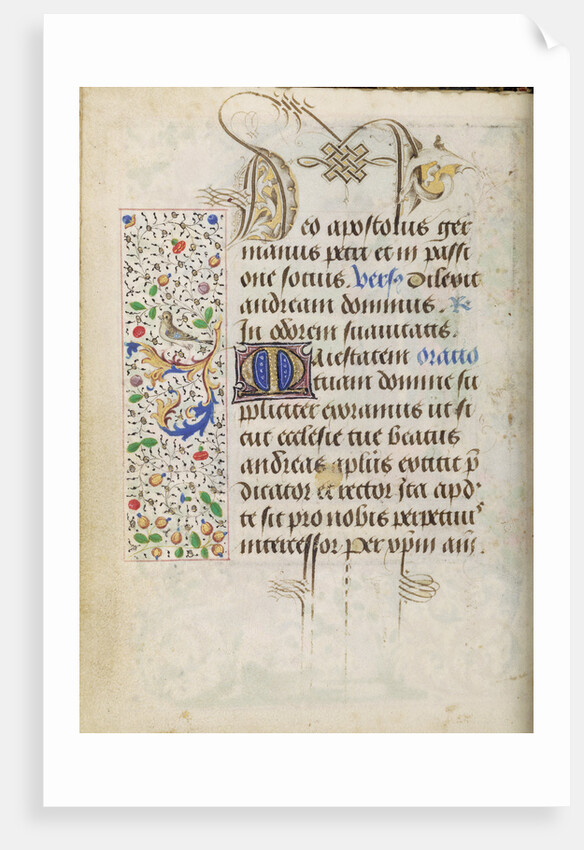 Deo apostolus ger
manus petri et in passi
one socius. Vers Dilexit
andream dominus. Re
In odorem suavitatis.
Maiestatem Oratio
tuam domine sup
pliciter exoramus ut si
cut ecclesie tue beatus
andreas aplus extitit p
dicator et rector Ita apd
te sit pro nobis perpetuus
intercessor Per xpm am.